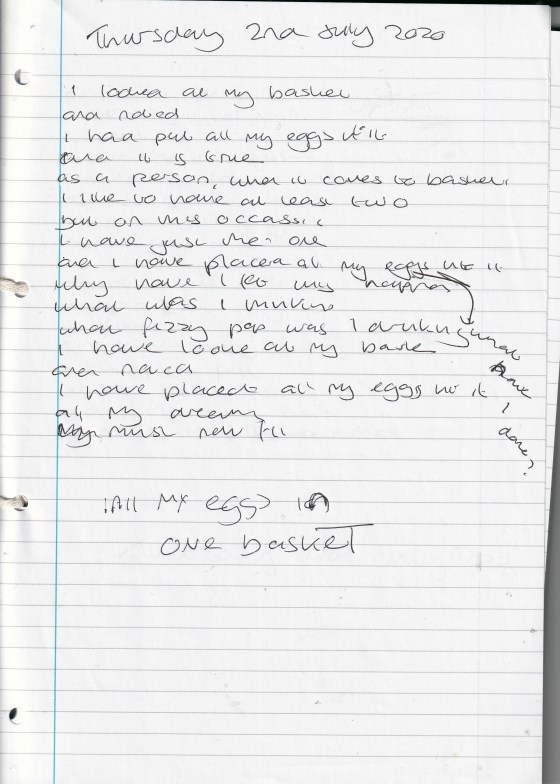 Thursday 2nd July 2020
I looked at my basket
and noted
I had put all my eggs in it
and it is true
as a person, when it comes to baskets
I like to have at least two
but on this occassion
I have just the one
and I have placed all my eggs into it
why have I let this happen
what was I thinking
what fizzy pop was I drinking
what have I done?
I have looked at my basket
and noted
I have placed all my eggs into it
all my dreams
must now
All my eggs in
one basket